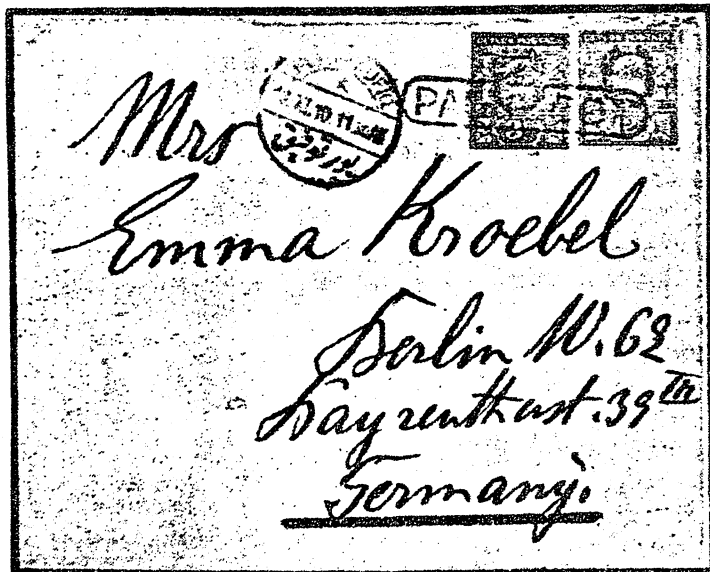 PA
Mrs
Emma Kroebel
Berlin W. 62
Bayreuthust. 39 III
Germany.